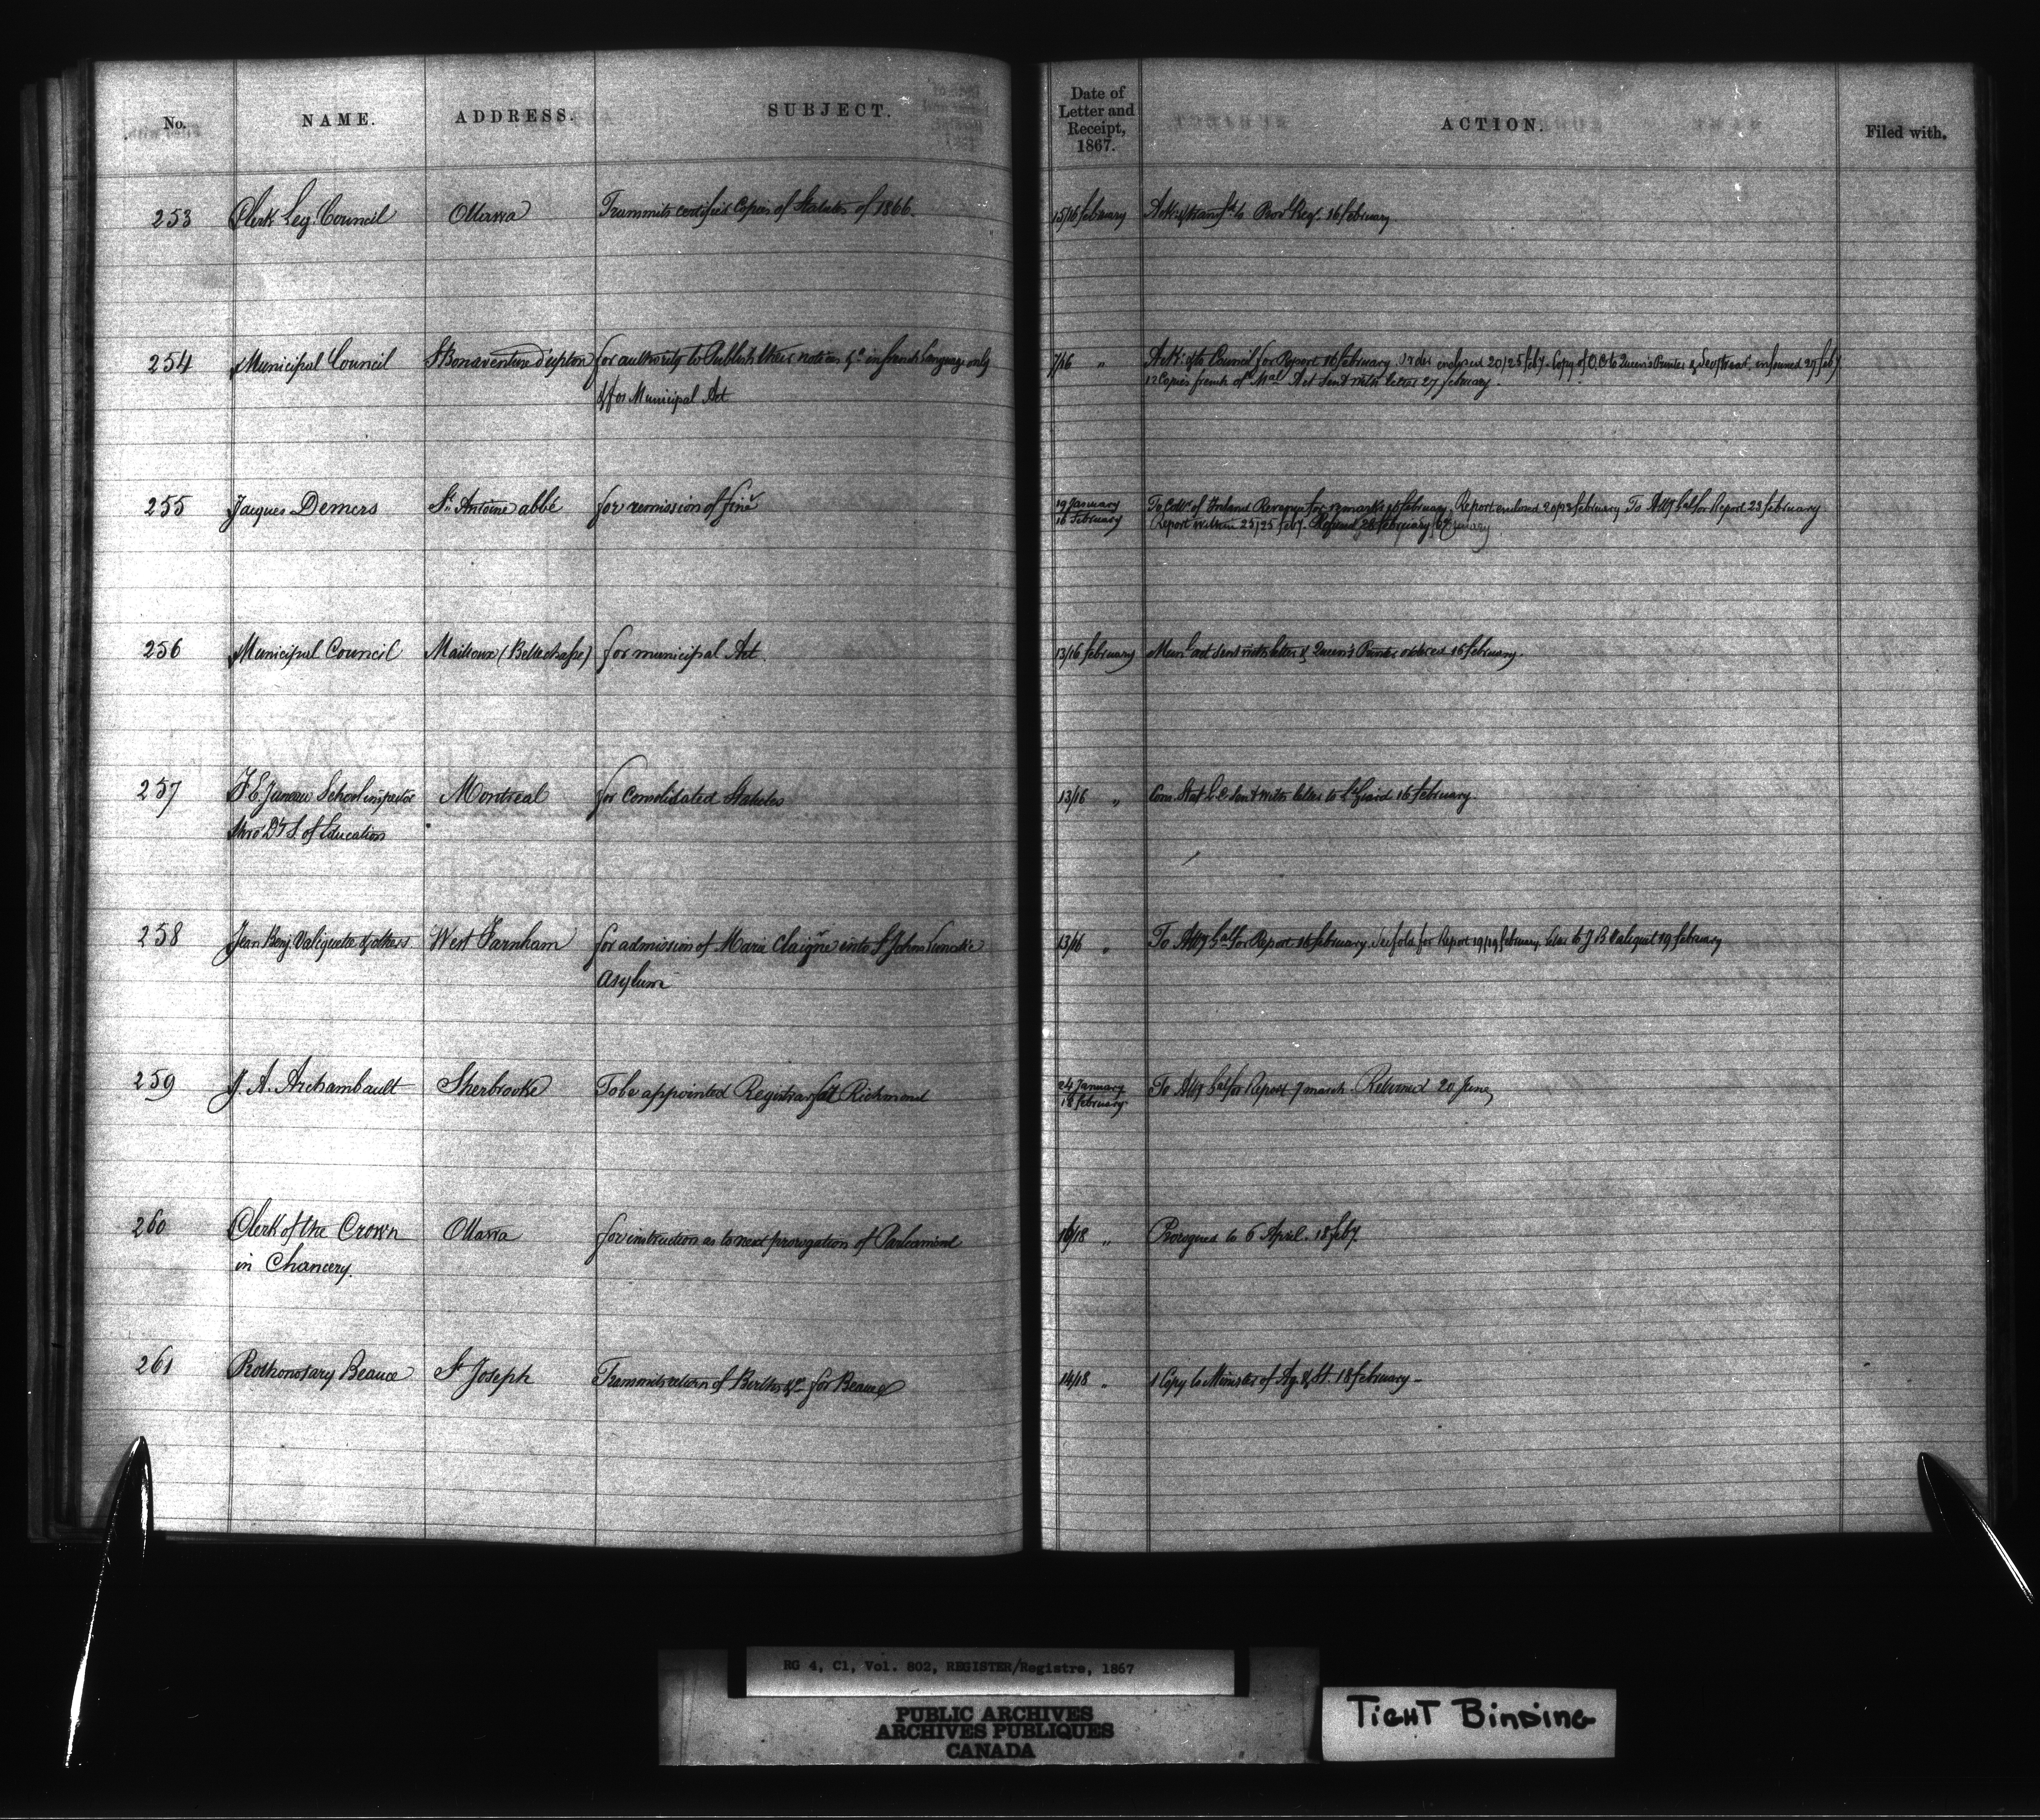 No. NAME. ADDRESS. SUBJECT. Date of Letter and Receipt, 1867. ACTION. Filed with.
253 Clerk Leg. Council Ottawa Transmits certified Copies of Statutes of 1866. 15/16 february Ack: & transfd to Provl Reg. 16 february
254 Municipal Council St Bonaventure d'upton for authority to Publish their notices &c in french language only 7/16 " Ack: & to Council for Report 16 february. Order enclosed 20/25 feby. Copy of O.C. to Queen's Printer & informed 27 feby
& for Municipal Act 12 Copies french of Act sent with letter 27 february.
255 Jacques Demers St Antoine abbé for remission of fine 19 January To Collr of Inland Revenue for remarks 16 february. Report enclosed february To Atty Gal for Report 23 february
16 February Report within 23/25 feby.
256 Municipal Council Mailloux (Bellechasse) for municipal Act. 13/16 february Munl act sent with letter & Queen's Printer ordered 16 february.
257 F. E. Juneau School inspector Montreal for Consolidated Statutes 13/16 " Con. Stat. L.C. sent with letter to 16 february.
thro' Dr S. of Education
258 Jean Benj. Valiquette & others West Farnham for admission of Marie Claigne into St Johns Lunatic 13/16 " To Atty Gal for Report 16 february. for Report 19/19 february. letter to J B Valiquet 19 february
Asylum
259 J. A. Archambault Sherbrooke To be appointed Registrar for Richmond 24 January To Atty Gal for Report 7 march. Returned 20 June
18 february
260 Clerk of the Crown Ottawa for instruction as to next prorogation of Parliament 16/18 " Prorogued to 6 April. 18 feby.
in Chancery.
261 Prothonotary Beauce St Joseph Transmits return of Births &c for Beauce 14/18 " 1 Copy to Minister of Ag. & St. 18 february -
RG 4, C1, Vol. 802, REGISTER/Registre, 1867
PUBLIC ARCHIVES
ARCHIVES PUBLIQUES
CANADA
TIGHT BINDING